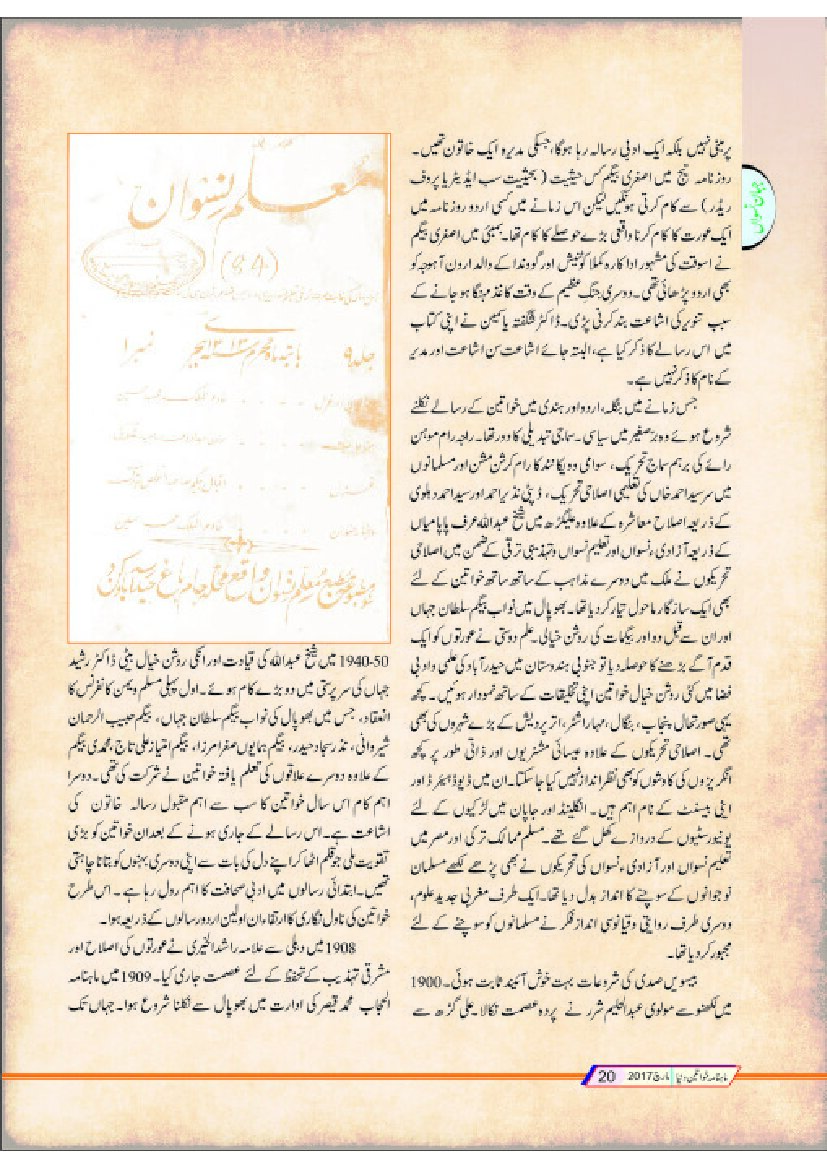 جہان نسواں
پر مبنی نہیں بلکہ ایک ادبی رسالہ رہا ہوگا، جسکی مدیرہ ایک خاتون تھیں۔
روزنامہ تیج میں اصغری بیگم کس حیثیت (بحیثیت سب ایڈیٹر یا پروف
ریڈر) سے کام کرتی ہونگیں لیکن اس زمانے میں کسی اردو روزنامہ میں
ایک عورت کا کام کرنا واقعی بڑے حوصلے کا کام تھا۔ بمبئی میں اصغری بیگم
نے اسوقت کی مشہور اداکارہ کملا کوٹنیش اور گووندا کے والد ارون آہوجہ کو
بھی اردو پڑھائی تھی۔ دوسری جنگ عظیم کے وقت کاغذ مہنگا ہو جانے کے
سبب تنویر کی اشاعت بند کرنی پڑی۔ ڈاکٹر شگفتہ یاسمین نے اپنی کتاب
میں اس رسالے کا ذکر کیا ہے، البتہ جائے اشاعت سن اشاعت اور مدیر
کے نام کا ذکر نہیں ہے۔
جس زمانے میں بنگلہ، اردو اور ہندی میں خواتین کے رسالے نکلنے
شروع ہوئے وہ برّصغیر میں سیاسی۔ سماجی تبدیلی کا دور تھا۔ راجہ رام موہن
رائے کی برہم سماج تحریک، سوامی وویکانند کا رام کرشن مشن اور مسلمانوں
میں سر سید احمد خاں کی تعلیمی اصلاحی تحریک، ڈپٹی نذیر احمد اور سید احمد دہلوی
کے ذریعہ اصلاح معاشرہ کے علاوہ علیگڑھ میں شیخ عبداللہ عرف پاپا میاں
کے ذریعہ آزادی ٔنسواں اور تعلیم نسواں و تہذیبی ترقی کے ضمن میں اصلاحی
تحریکوں نے ملک میں دوسرے مذاہب کے ساتھ ساتھ خواتین کے لئے
بھی ایک سازگار ماحول تیار کر دیا تھا۔ بھوپال میں نواب بیگم سلطان جہاں
اور ان سے قبل وہ اور بیگمات کی روشن خیالی۔ علم دوستی نے عورتوں کو ایک
قدم آگے بڑھنے کا حوصلہ دیا تو جنوبی ہندوستان میں حیدرآباد کی علمی و ادبی
فضا میں کئی روشن خیال خواتین اپنی تخلیقات کے ساتھ نمودار ہوئیں۔ کچھ
یہی صورتحال پنجاب، بنگال، مہاراشٹر، اتر پردیش کے بڑے شہروں کی بھی
تھی۔ اصلاحی تحریکوں کے علاوہ عیسائی مشنریوں اور ذاتی طور پر کچھ
انگریزوں کی کاوشوں کو بھی نظر انداز نہیں کیا جا سکتا۔ ان میں ڈیوڈ ہیئر ڈ اور
اینی بیسنٹ کے نام اہم ہیں۔ انگلینڈ اور جاپان میں لڑکیوں کے لئے
یونیورسٹیوں کے دروازے کھل گئے تھے۔ مسلم ممالک ترکی اور مصر میں
تعلیم نسواں اور آزادی ٔنسواں کی تحریکوں نے بھی پڑھے لکھے مسلمان
نوجوانوں کے سوچنے کا انداز بدل دیا تھا۔ ایک طرف مغربی جدید علوم،
دوسری طرف روایتی دقیانوسی انداز فکر نے مسلمانوں کو سوچنے کے لئے
مجبور کر دیا تھا۔
بیسویں صدی کی شروعات بہت خوش آئیند ثابت ہوئی۔ 1900
میں لکھنو سے مولوی عبدالحلیم شرر نے پردہ عصمت نکالا۔ علی گڑھ سے
معلم نسواں
(۶۴)
جلد ۹ بابتہ ماہ محرم ۱۳۱۳ نمبر ۱
1940-50 میں شیخ عبداللہ کی قیادت اور انکی روشن خیال بیٹی ڈاکٹر رشید
جہاں کی سرپرستی میں دو بڑے کام ہوئے۔ اول پہلی مسلم ویمن کانفرنس کا
انعقاد، جس میں بھوپال کی نواب بیگم سلطان جہاں، بیگم حبیب الرحمان
شیروانی، نذر سجاد حیدر، بیگم ہمایوں صغرا مرزا، بیگم امتیاز علی تاج، محمدی بیگم
کے علاوہ دوسرے علاقوں کی تعلم یافتہ خواتین نے شرکت کی تھی۔ دوسرا
اہم کام اس سال خواتین کا سب سے اہم مقبول رسالہ خاتون کی
اشاعت ہے۔ اس رسالے کے جاری ہونے کے بعد ان خواتین کو بڑی
تقویت ملی جو قلم اٹھا کر اپنے دل کی بات سے اپنی دوسری بہنوں کو بتانا چاہتی
تھیں۔ ابتدائی رسالوں میں ادبی صحافت کا اہم رول رہا ہے۔ اس طرح
خواتین کی ناول نگاری کا ارتقاء ان اولین اردو رسالوں کے ذریعہ ہوا۔
1908 میں دہلی سے علامہ راشد الخیری نے عورتوں کی اصلاح اور
مشرقی تہذیب کے تحفظ کے لئے عصمت جاری کیا۔ 1909 میں ماہنامہ
الحجاب محمد قیصر کی ادارت میں بھوپال سے نکلنا شروع ہوا۔ جہاں تک
ماہنامہ خواتین دنیا مارچ 2017 20